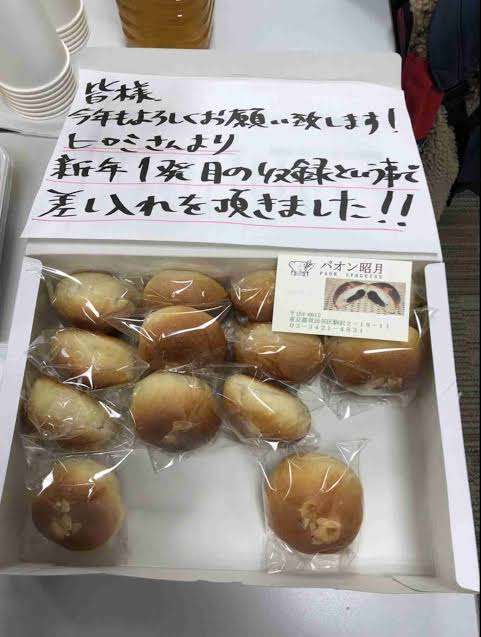 皆様
今年もよろしくお願い致します!
ヒロミさんより
新年1発目の収録という事で
差し入れを頂きました!!
パオン昭月
PAON SHOGETSU
東京都世田谷区駒沢2-18-11
03-3421-4831